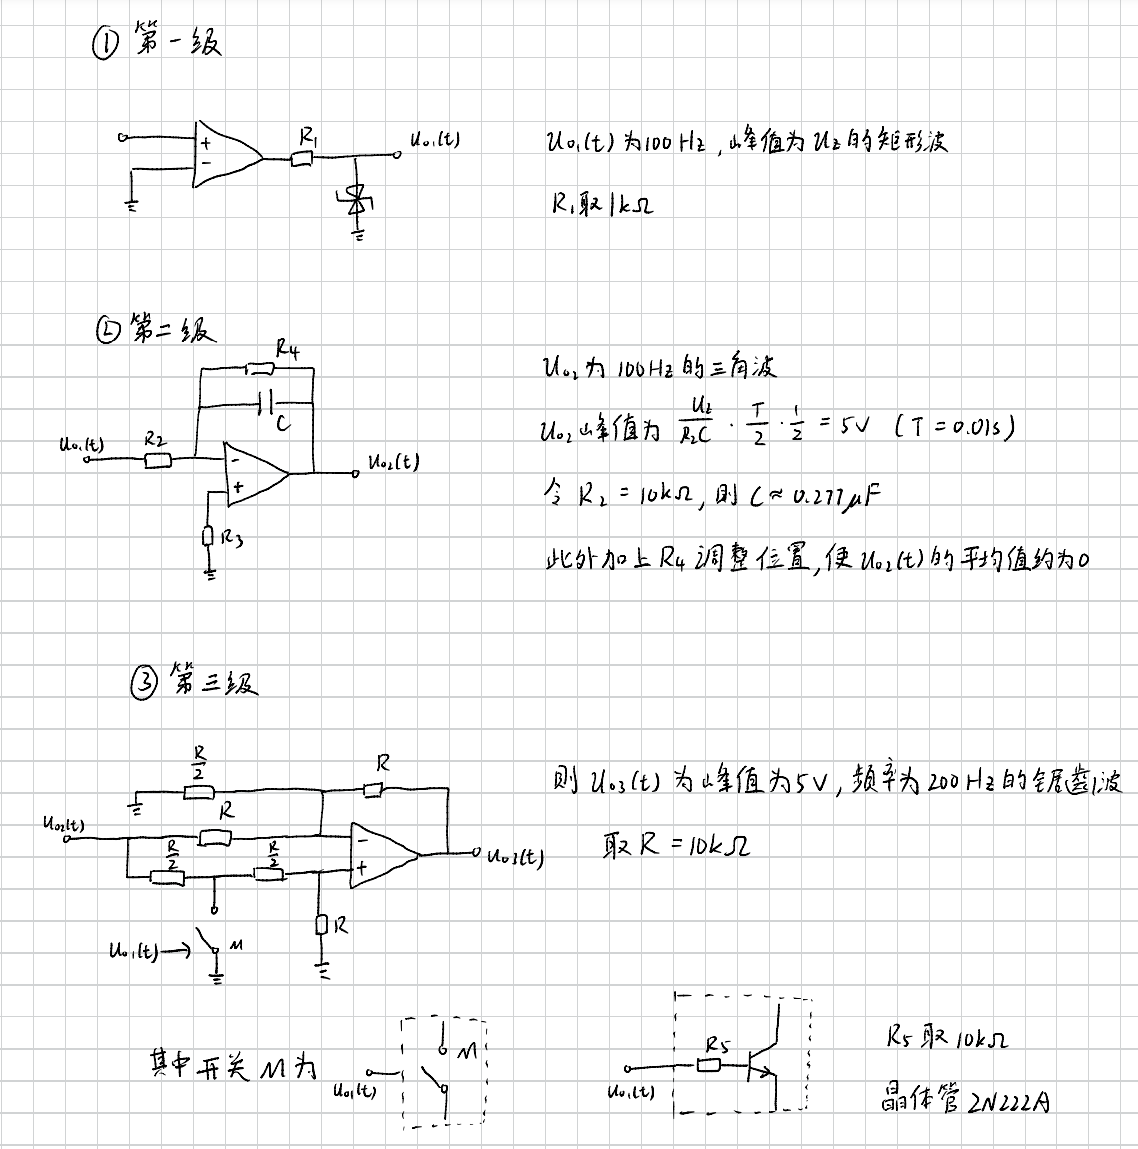 ① 第一级
+
-
R₁
U₀₁(t)
U₀₁(t)为100Hz,峰值为Uz的矩形波
R₁取1kΩ
② 第二级
R₄
C
U₀₁(t)
R₂
-
+
U₀₂(t)
R₃
U₀₂为100Hz的三角波
U₀₂峰值为 Uz/R₂C · T/2 · 1/2 = 5V (T=0.01s)
令 R₂ = 10kΩ, 则 C ≈ 0.277μF
此外加上R₄调整位置,使U₀₂(t)的平均值约为0
③ 第三级
R/2
R
U₀₂(t)
R
R/2
R/2
-
+
U₀₃(t)
R
U₀₁(t)→
M
则U₀₃(t)为峰值为5V,频率为200Hz的锯齿波
取R=10kΩ
其中开关M为
U₀₁(t)
M
U₀₁(t)
R₅
R₅取10kΩ
晶体管2N222A